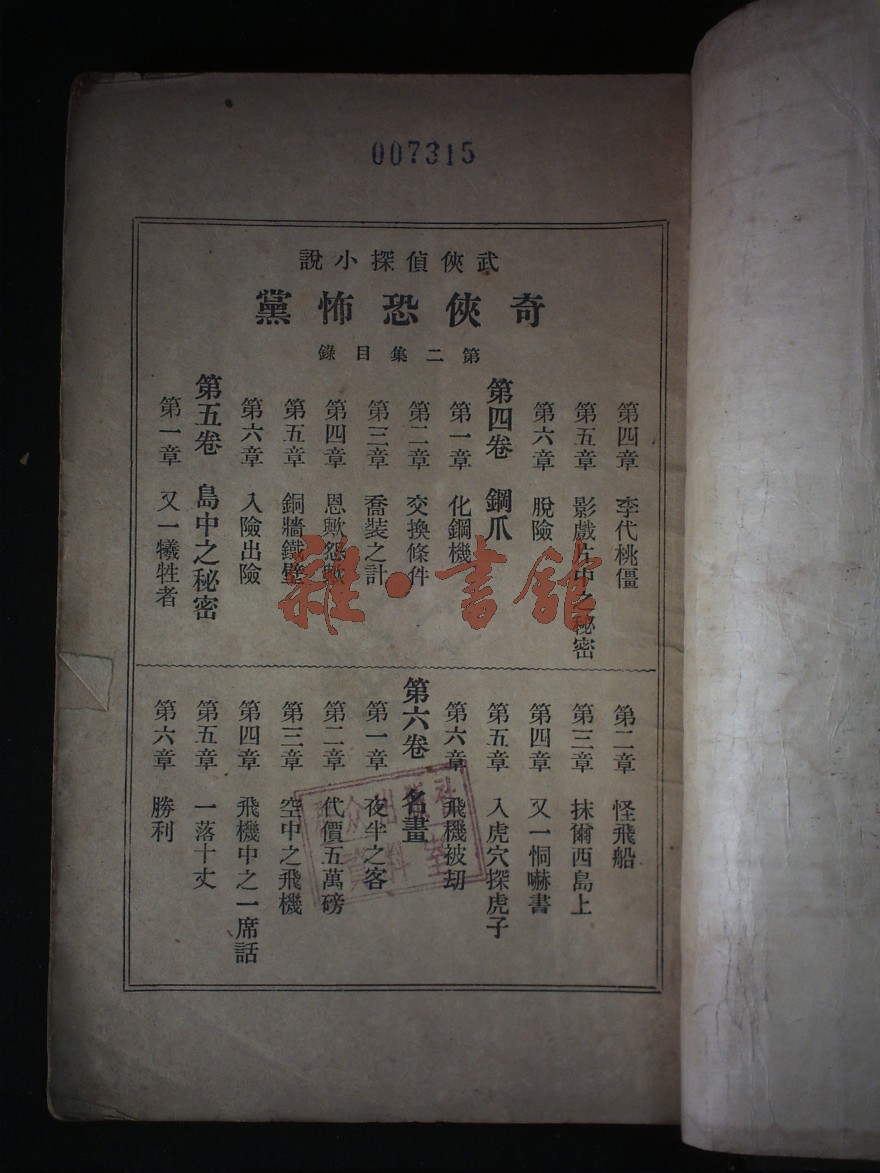 007315
武俠偵探小說
奇俠恐怖黨
第二集目錄
第四章 李代桃僵
第五章 影戲片中之秘密
第六章 脫險
第四卷 鋼爪
第一章 化鋼機
第二章 交換條件
第三章 喬裝之計
第四章 恩歟怨歟
第五章 銅牆鐵壁
第六章 入險出險
第五卷 島中之秘密
第一章 又一犧牲者
第二章 怪飛船
第三章 抹爾西島上
第四章 又一恫嚇書
第五章 入虎穴探虎子
第六章 飛機被劫
第六卷 名畫
第一章 夜半之客
第二章 代價五萬磅
第三章 空中之飛機
第四章 飛機中之一席話
第五章 一落十丈
第六章 勝利
雜·書館
資料室